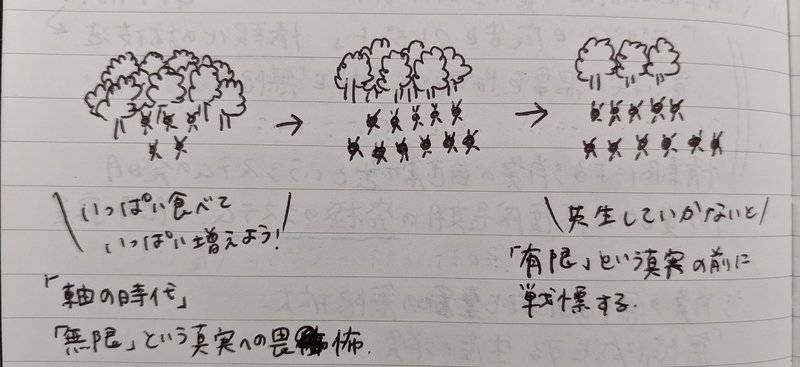 いっぱい食べて
いっぱい増えよう!
「軸の時代」
「無限」という真実への畏怖.
共生していかないと
「有限」という真実の前に
戦慄する.